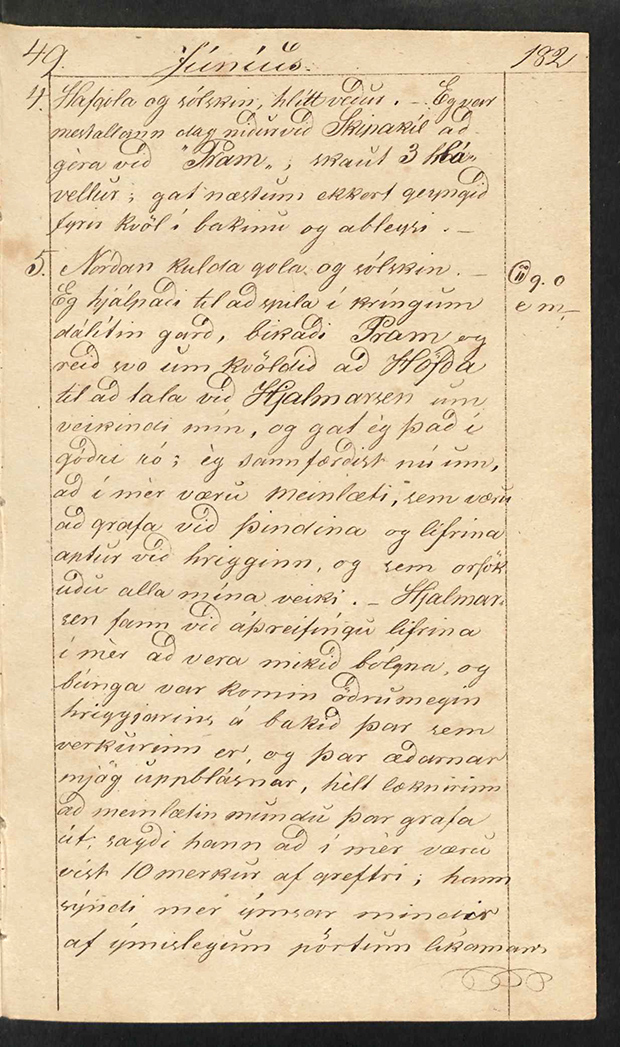 49. Júníus. 182
4. Hafgola og sólskin, hlítt veður. – Eg var
mestallann dag niðurvið Skipakíl að
gèra við "Pram„; skaut 3 hlá„
vellur; gat næstum ekkert gesyngið
fyrir kvöl í bakinu og ableysi. –
5. Norðan kulda gola og sólskin. – g. 0
Eg hjálpaði til að spila í kríngum e m,–
dálítin garð, bikaði Pram og
reið svo um kvöldið að Höfða
til að tala við Hjalmarsen um
veikindi mín, og gat èg það í
góðri ró; èg sannfærðist nú um,
að í mèr væru meinlæti, sem væru
að grafa við þindina og lifrina
aptur við hrigginn, og sem orsök„
uðu alla mína veiki. – Hjalmar„
sen fann við áþreifingu lifrina
í mèr að vera mikið bólgna, og
búnga var komin öðrumegin
hriggjarins á bakið þar sem
verkurinn er, og þar æðarnar
mjög uppblásnar, hèlt læknirinn
að meinlætin mundu þar grafa
út; sagði hann að í mèr væru
vist 10 merkur af greftri; hann
sýndi mèr ýmsar mindir
af ýmislegum pörtum líkamans